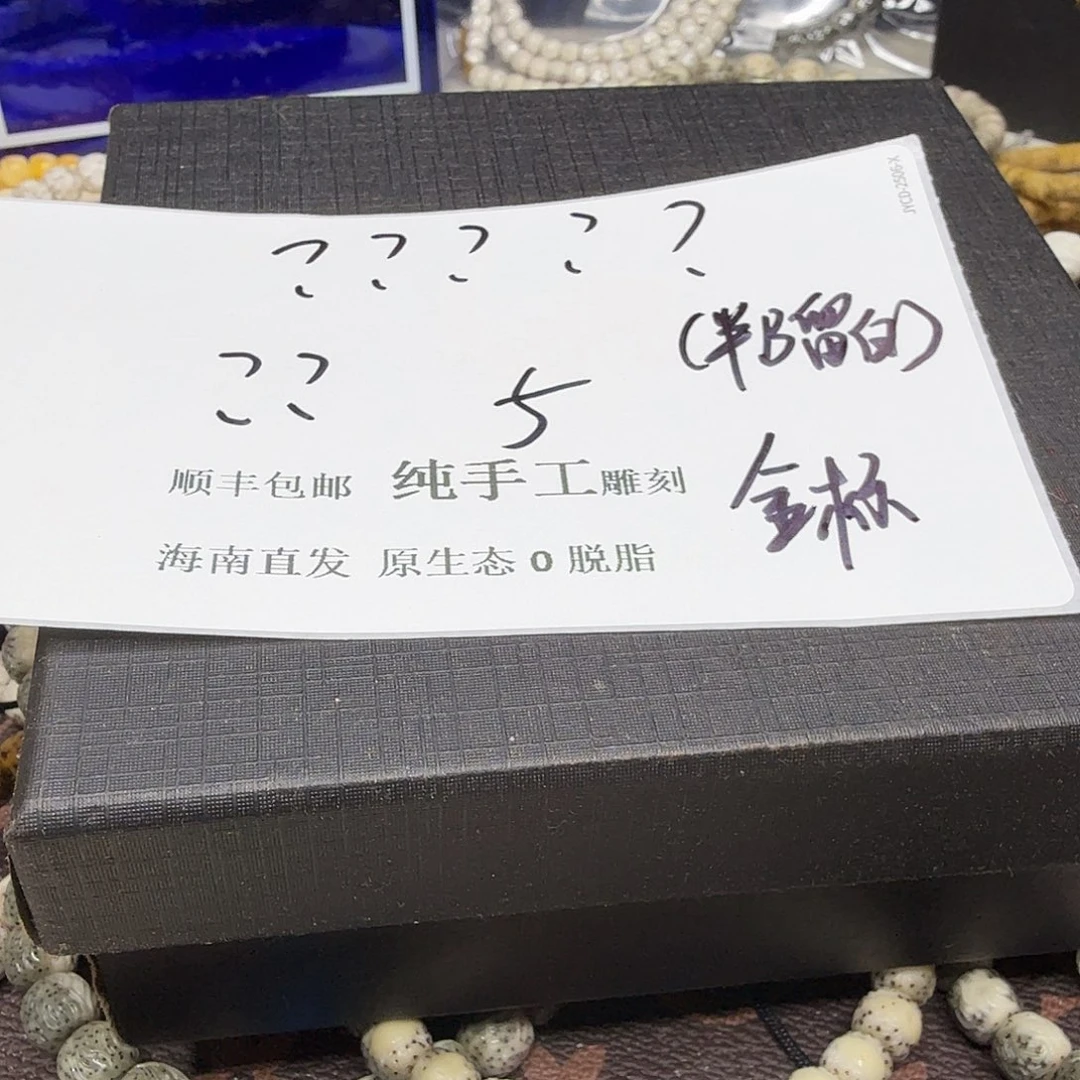 ?????
(半B留白)
?? 5
顺丰包邮 纯手工雕刻
金板
海南直发 原生态0脱脂